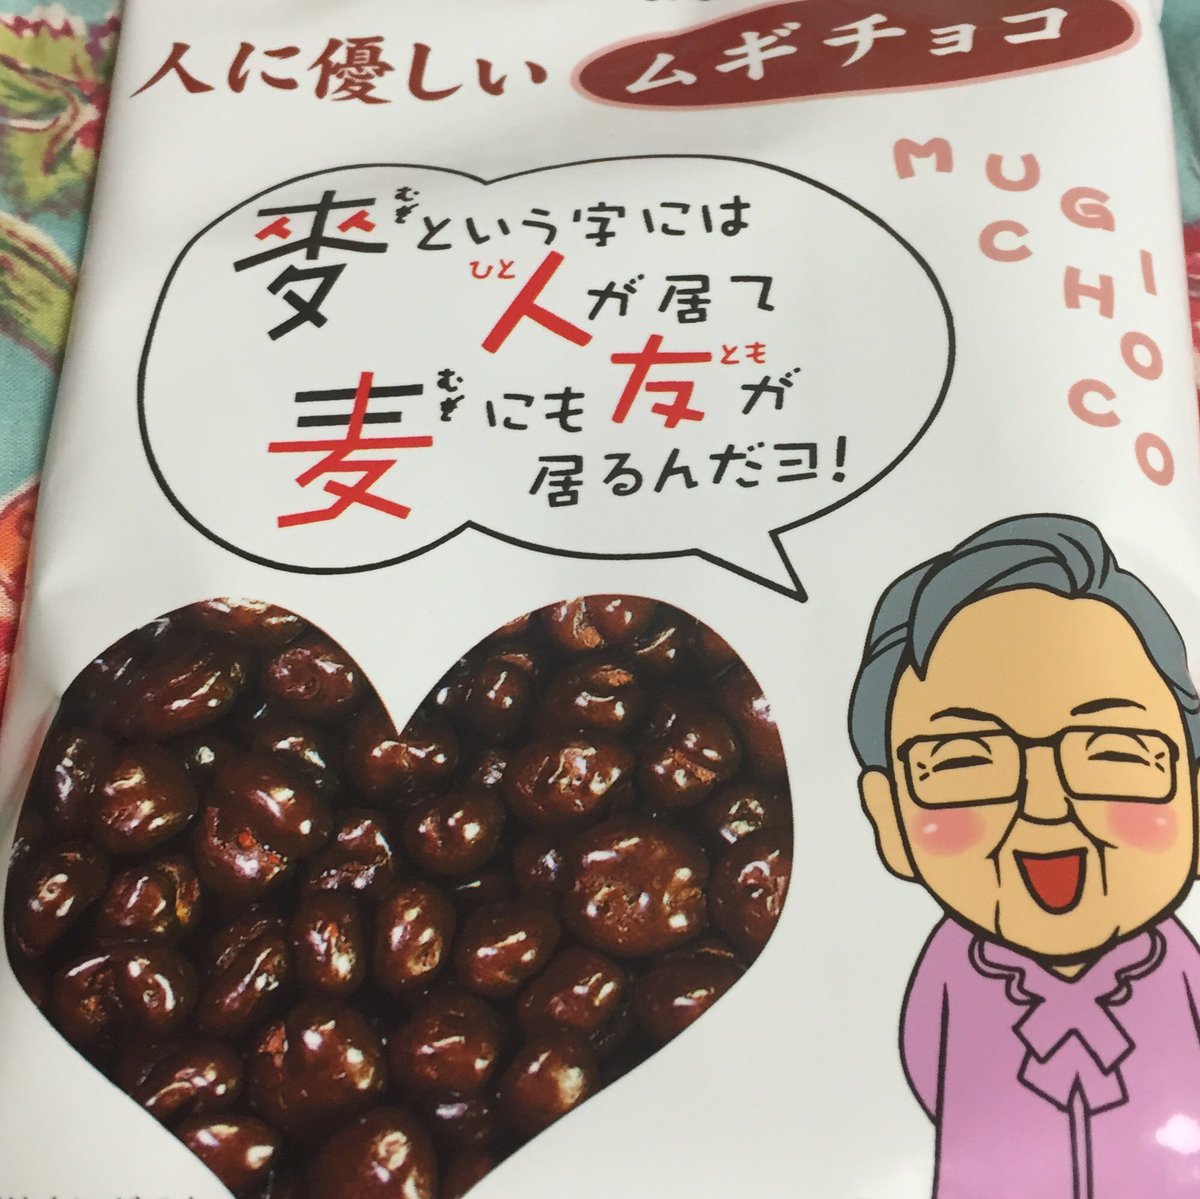 人に優しい ムギチョコ
MUGI
CHOCO
麥(むぎ)という字には
人(ひと)が居て
麦(むぎ)にも友(とも)が
居るんだヨ!